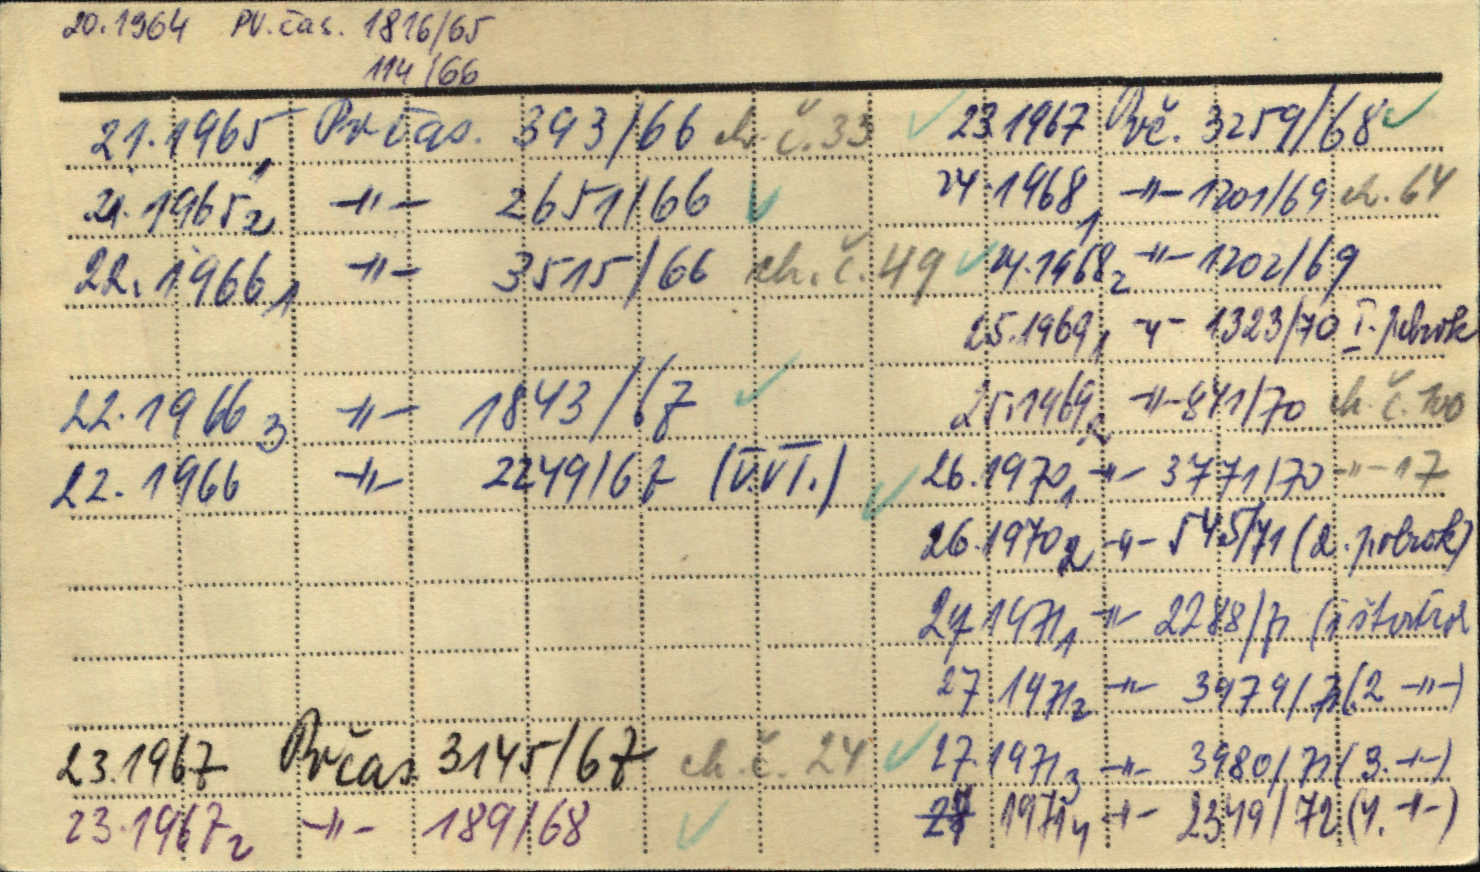 20.1964 PV.čas. 1816/65
114/66
21.1965 1 Pr čas. 393/66 ch. č. 33 ✓
21.1965 2 -"- 2651/66 ✓
22.1966 1 -"- 3515/66 ch. č. 49 ✓
22.1966 3 -"- 1843/67 ✓
22.1966 -"- 2249/67 (V.VI.) ✓
23.1967 Pr čas. 3145/67 ch. č. 24 ✓
23.1967 2 -"- 189/68 ✓
23.1967 Prč. 3259/68 ✓
24.1968 1 -"- 1201/69 ch. 64
24.1968 2 -"- 1202/69
25.1969 1 -"- 1323/70 I. polrok
25.1969 2 -"- 841/70 ch. č. 100
26.1970 1 -"- 3771/70 -"- 17
26.1970 2 -"- 545/71 (2. polrok)
27 1971 1 -"- 2288/71
27 1971 2 -"- 3979/71 (2 -"-)
27.1971 3 -"- 3980/71 (3. -"-)
27 1971 4 -"- 2349/72 (4. -"-)